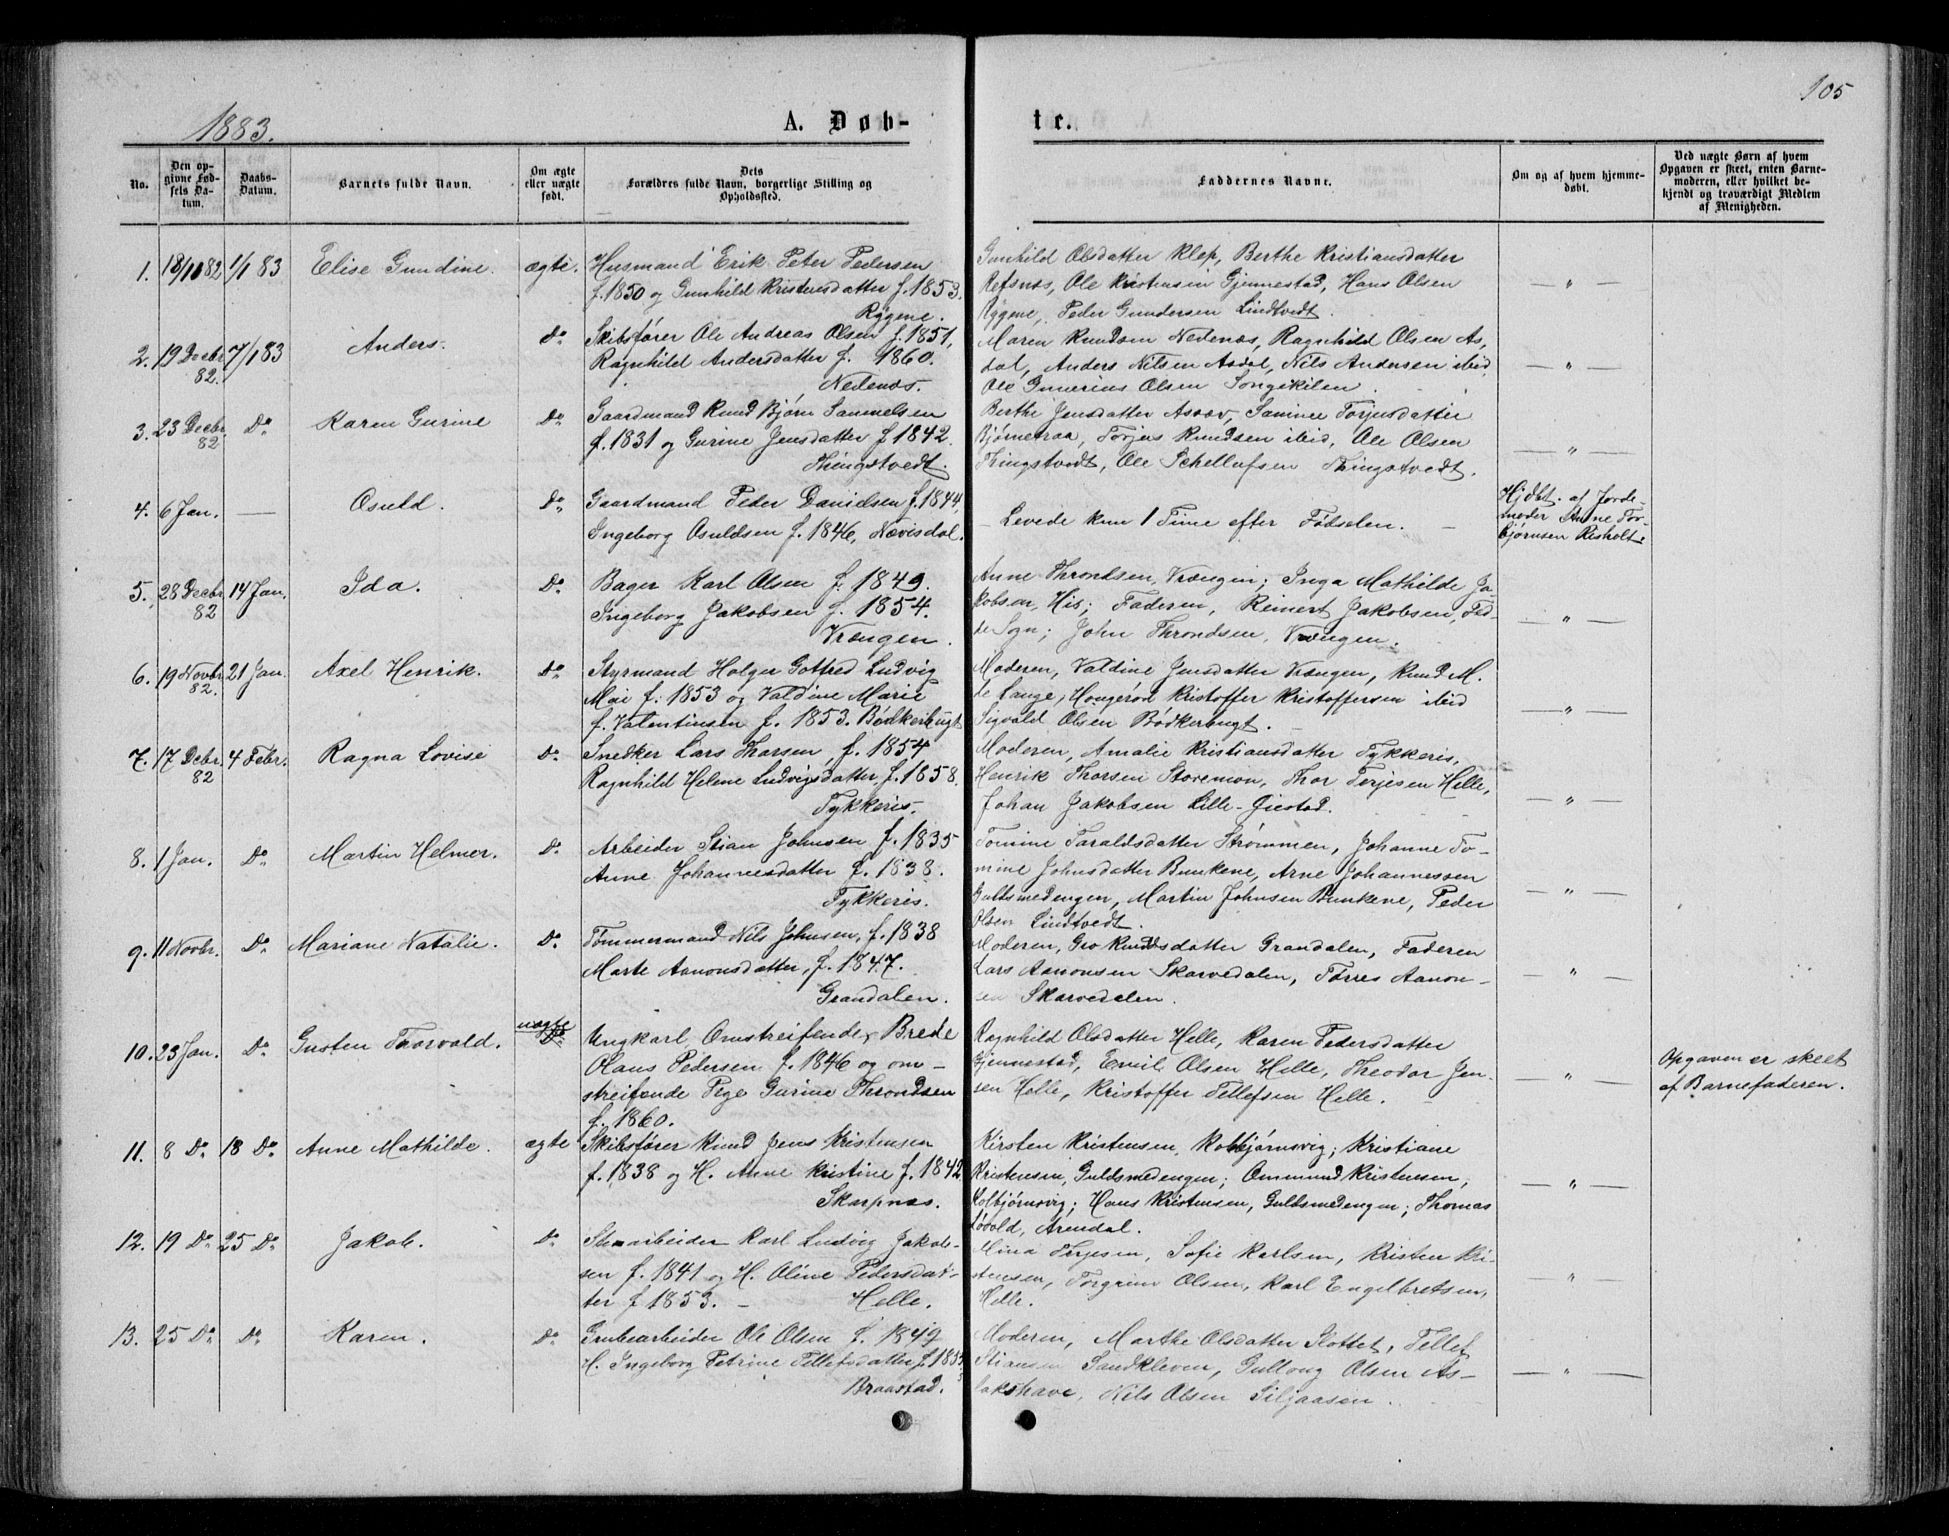 105
1883.
A. Døb-
te.
No.
Den op-
givne Fød-
sels Da-
tum.
Daabs-
Datum.
Barnets fulde Navn.
Om ægte
eller uægte
født.
Dets
Forældres fulde Navn, borgerlige Stilling og
Opholdssted.
Faddernes Navne.
Om og af hvem hjemme-
døbt.
Ved uægte Børn af hvem
Opgaven er skeet, enten Barne-
moderen, eller hvilket be-
kjendt og troværdigt Medlem
af Menigheden.
1. 18/11 82 1/1 83 Elise Gundine. ægte. Husmand Erik Peter Pedersen
f. 1850 og Gunhild Kristensdatter f. 1853.
Rygene.
Gunhild Olsdatter Klep, Berthe Kristiansdatter
Refsnæs, Ole Kristensen Gjennestad, Hans Olsen
Rygene, Peder Gundersen Lindtvedt.
— " —
2. 19 Decbr 82. 7/1 83 Anders. Do Skibsfører Ole Andreas Olsen f. 1851,
Ragnhild Andersdatter f. 1860.
Nedenæs.
Maren Knudsen Nedenæs, Ragnhild Olsen As-
dal, Anders Nilsen Asdal, Nils Andersen ibid,
Ole Gunerius Olsen Songekilen.
— " —
3. 23 Decbr. 82 Do Karen Gurine Do Gaardmand Knud Bjørn Samuelsen
f. 1831 og Gurine Jensdatter f. 1842.
Thingstvedt.
Berthe Jensdatter Asdøv, Torjusdatter
Bjørnetraa, Torjus Knudsen ibid, Ole Olsen
Thingstvedt, Ole Schellufsen Thingstvedt.
— " —
4. 6 Jan. — Osuld. Do Gaardmand Peder Danielsen f. 1844,
Ingeborg Osuldsen f. 1846, Nævisdal.
— Levede kun 1 Time efter Fødselen. —
Hjdbt. af Jorde-
moder Anne Tor-
bjørnsen Risholt.
5. 28 Decbr 82 14 Jan. Ida. Do Bager Karl Olsen f. 1849.
Ingeborg Jakobsen f. 1854.
Vrængen.
Anne Throndsen, Vrængen; Inga Mathilde Ja-
kobsen, His; Faderen, Reinert Jakobsen,
Sogn; John Throndsen, Vrængen.
— " —
6. 19 Novbr 82. 21 Jan. Axel Henrik. Do Styrmand Holger Gotfred Ludvig
Mai f. 1853 og Valdine Marie
f. Valentinsen f. 1853. Bødkerbugt
Moderen, Valdine Jensdatter Vrængen, Knud M.
de Lange, Hougerød Kristoffer Kristoffersen ibid
Sigvald Olsen Bødkerbugt.
— " —
7. 17 Decbr. 82 4 Febr. Ragna Lovise Do Snedker Lars Thorsen, f. 1854
Ragnhild Helene Ludvigsdatter f. 1858.
Tykkeris.
Moderen, Amalie Kristiansdatter Tykkeris,
Henrik Thorsen Storemon, Thor Terjesen Helle,
Johan Jakobsen Lille-Øiestad.
— " —
8. 1 Jan. Do Martin Helmer. Do Arbeider Stian Johnsen f. 1835
Anne Johannesdatter f. 1838.
Tykkeris.
Tomine Taraldsdatter Strømmen, Johanne To-
mine Johnsdatter Bunkene, Arne Johannessen
Guldsmedengen, Martin Johnsen Bunkene, Peder
Olsen Lindtvedt.
— " —
9. 11 Novbr. Do Mariane Natalie. Do Tømmermand Nils Johnsen, f. 1838
Marte Aanonsdatter, f. 1847.
Grandalen.
Moderen, Gro Knudsdatter Grandalen, Faderen
Lars Aanonsen Skarvedalen, Tørres Aanon-
sen Skarvedalen.
— " —
10. 23 Jan. Do Gusten Thorvald. uægte Do Ungkarl, Omstreifende, Brede
Olaus Pedersen f. 1846 og om-
streifende Pige Gurine Throndsen
f. 1860.
Ragnhild Olsdatter Helle, Karen Pedersdatter
Gjennestad, Emil Olsen Helle, Theodor Jen-
sen Helle, Kristoffer Tellefsen Helle.
— " —
Opgaven er skeet
af Barnefaderen.
11. 8 Do 18 Do Anne Mathilde. ægte Skibsfører Knud Jens Kristensen
f. 1838 og H. Anne Kristine f. 1842
Skarpnæs.
Kirsten Kristensen, Kolbjørnsvig; Kristiane
Kristensen, Guldsmedengen; Ommund Kristensen,
Kolbjørnsvig; Hans Kristensen, Guldsmedengen; Thomas
Løvold, Arendal.
— " —
12. 19 Do 25 Do Jakob. Do Stenarbeider Karl Ludvig Jakob-
sen f. 1841 og H. Oline Pedersdat-
ter f. 1853. — Helle.
Mina Terjesen, Sofie Karlsen, Kristen Kri-
stensen, Torgrim Olsen, Karl Engelbretsen,
Helle.
— " —
13. 25 Do Do Karen. Do Grubearbeider Ole Olsen f. 1849
H. Ingeborg Petrine Tellefsdatter f. 1855
Braastad.
Moderen, Marthe Olsdatter Slottet, Tellef
Stiansen Sandkleven, Gullong Olsen As-
lakshave, Nils Olsen Siljaasen.
— " —